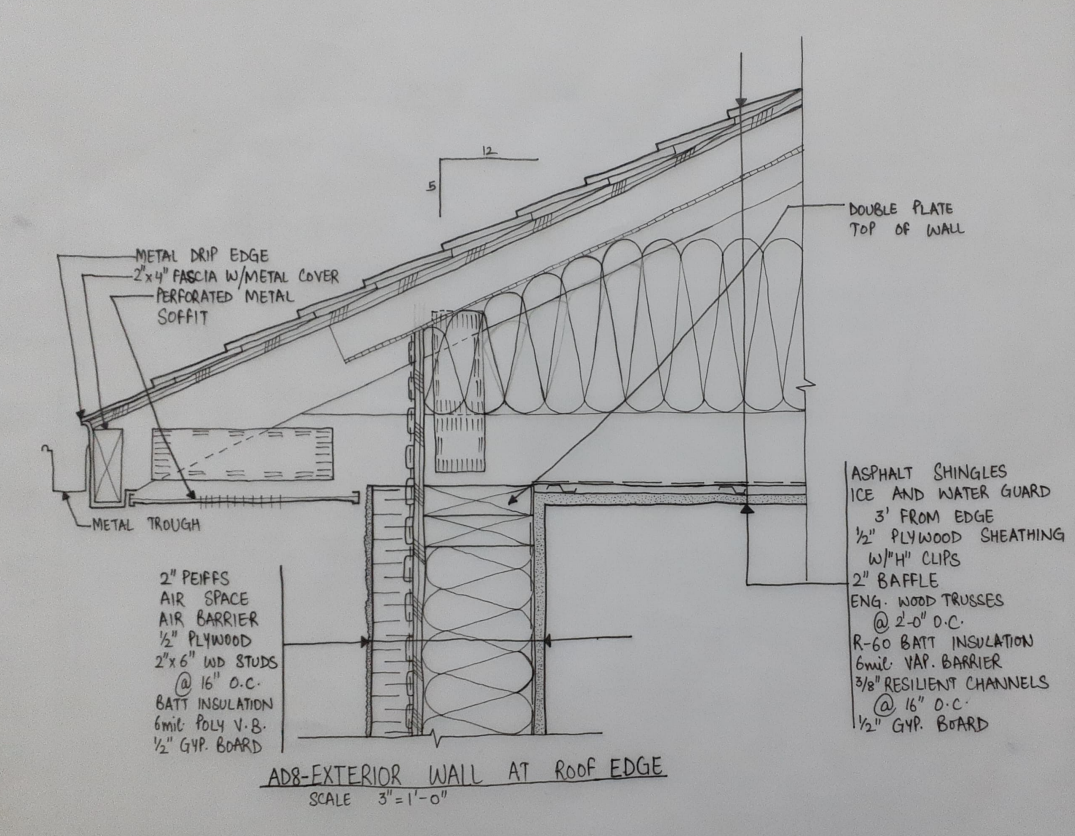 12
5
DOUBLE PLATE
TOP OF WALL
METAL DRIP EDGE
2"x4" FASCIA W/METAL COVER
PERFORATED METAL
SOFFIT
METAL TROUGH
ASPHALT SHINGLES
ICE AND WATER GUARD
3' FROM EDGE
1/2" PLYWOOD SHEATHING
W/"H" CLIPS
2" BAFFLE
ENG. WOOD TRUSSES
@ 2'-0" O.C.
R-60 BATT INSULATION
6mil VAP. BARRIER
3/8" RESILIENT CHANNELS
@ 16" O.C.
1/2" GYP. BOARD
2" PEIFFS
AIR SPACE
AIR BARRIER
1/2" PLYWOOD
2"x6" WD STUDS
@ 16" O.C.
BATT INSULATION
6mil POLY V.B.
1/2" GYP. BOARD
AD8-EXTERIOR WALL AT ROOF EDGE
SCALE 3"=1'-0"